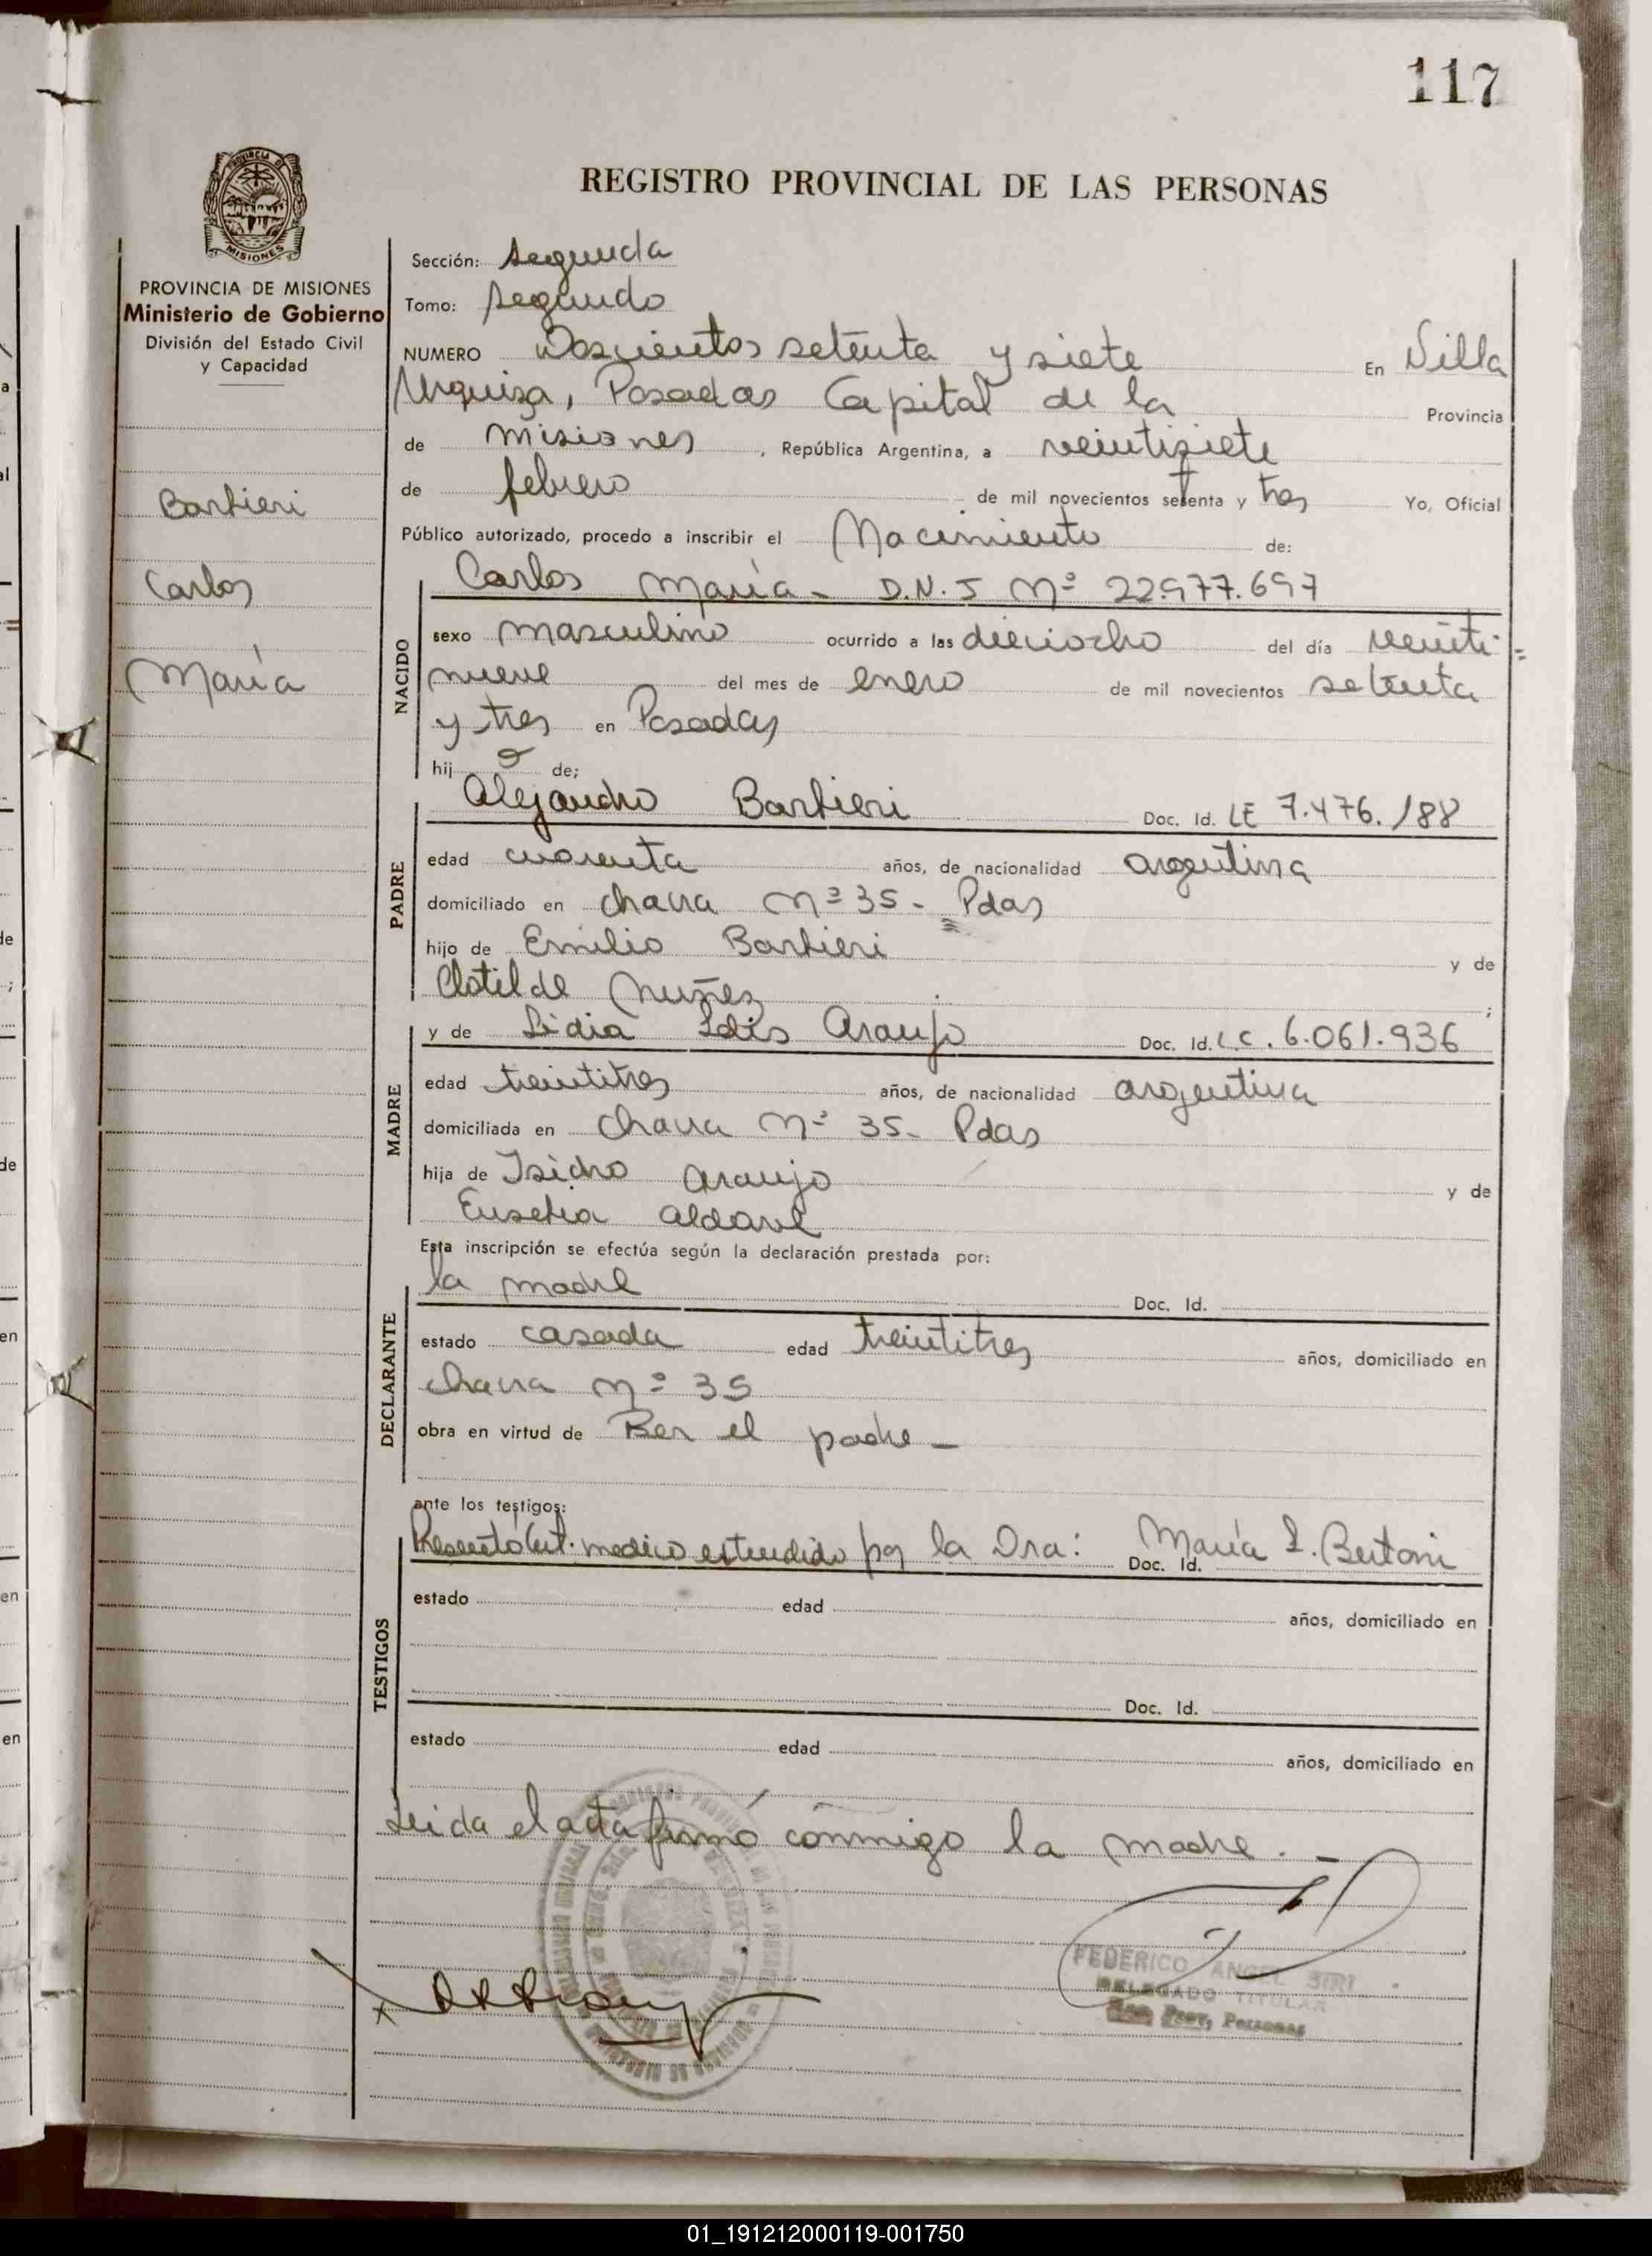 117
PROVINCIA DE MISIONES
REGISTRO PROVINCIAL DE LAS PERSONAS
PROVINCIA DE MISIONES
Ministerio de Gobierno
División del Estado Civil
y Capacidad
Barbieri
Carlos
María
Sección: segunda
Tomo: segundo
NUMERO Doscientos setenta y siete En Villa
Urquiza, Posadas Capital de la Provincia
de Misiones, República Argentina, a veintisiete
de febrero de mil novecientos setenta y tres Yo, Oficial
Público autorizado, procedo a inscribir el Nacimiento de:
Carlos María - D.N.I Nº 22.977.697
NACIDO
sexo masculino ocurrido a las dieciocho del día veinti=
nueve del mes de enero de mil novecientos setenta
y tres en Posadas
hijo de;
PADRE
Alejandro Barbieri Doc. Id. LE 7.476.188
edad cuarenta años, de nacionalidad argentina
domiciliado en chacra Nº 35 - Pdas
hijo de Emilio Barbieri y de
Clotilde Nuñez ;
MADRE
y de Lidia Araujo Doc. Id. L.C. 6.061.936
edad treintitres años, de nacionalidad argentina
domiciliada en chacra Nº 35 - Pdas
hija de Isidro Araujo y de
Eusebia Aldave
Esta inscripción se efectúa según la declaración prestada por:
DECLARANTE
la madre Doc. Id.
estado casada edad treintitres años, domiciliado en
chacra Nº 35
obra en virtud de Ser el padre -
ante los testigos:
TESTIGOS
Presentó Cert. medico extendido por la Dra: María I. Bertoni
Doc. Id.
estado edad años, domiciliado en
Doc. Id.
estado edad años, domiciliado en
Leida el acta firmó conmigo la madre. -
FEDERICO ANGEL SIRI
DELEGADO TITULAR
Prov, Personas
01_191212000119-001750